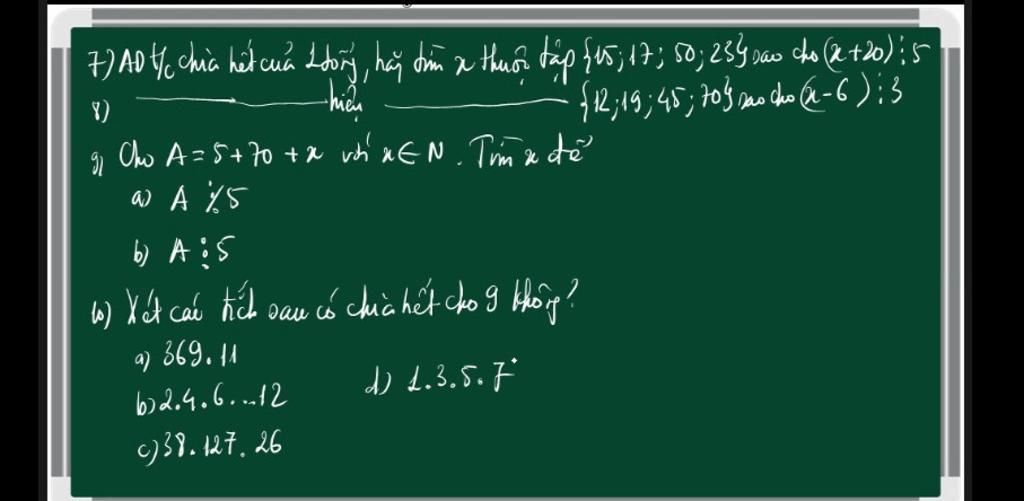 7) AD t/c chia hết của 1 tổng, hãy tìm x thuộc tập {15; 17; 50; 23} sao cho (x+20) ⋮ 5
8) ———————— hiệu ———————— {12; 19; 45; 70} sao cho (x-6) ⋮ 3
9) Cho A = 5 + 70 + x với x ∈ N. Tìm x để
a) A ⋮̸ 5
b) A ⋮ 5
10) Xét các tích sau có chia hết cho 9 không?
a) 369.11
b) 2.4.6...12 d) 1.3.5.7
c) 38.127.26